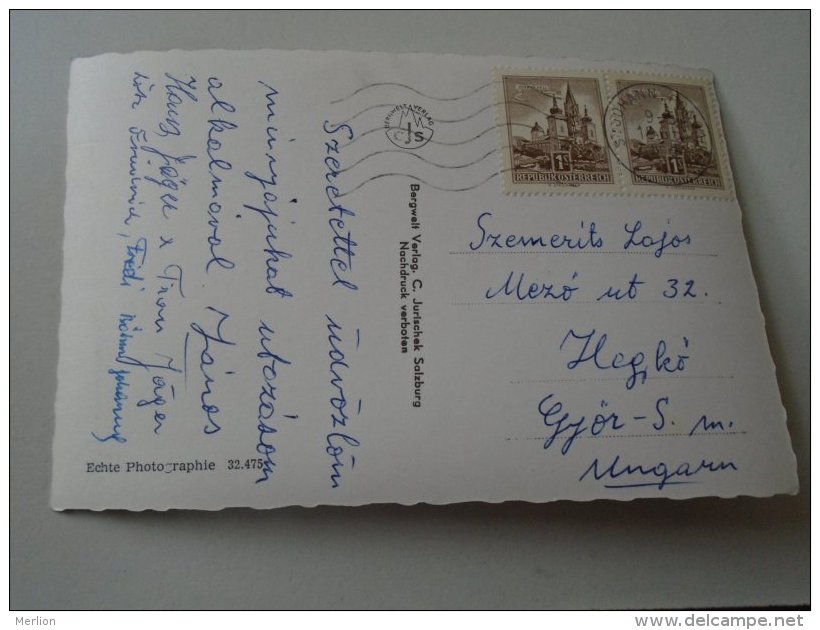 Szeretettel üdvözlöm
mindnyájukat utazásom
alkalmával János
Hans Jäger x Frau Jäger
Fredi
BERGWELT VERLAG
C J S
Bergwelf Verlag, C. Jurischek Salzburg
Nachdruck verboten
Echte Photographie 32.475
1S 1S
REPUBLIK ÖSTERREICH REPUBLIK ÖSTERREICH
Szemerits Lajos
Mező ut 32.
Hegykő
Győr-S. m.
Ungarn
Merlion
www.delcampe.net